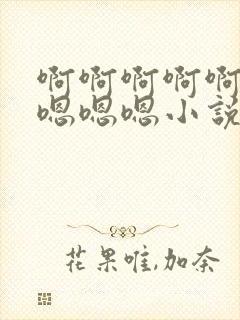 啊啊啊啊啊
嗯嗯嗯小説
花果唯,加奈